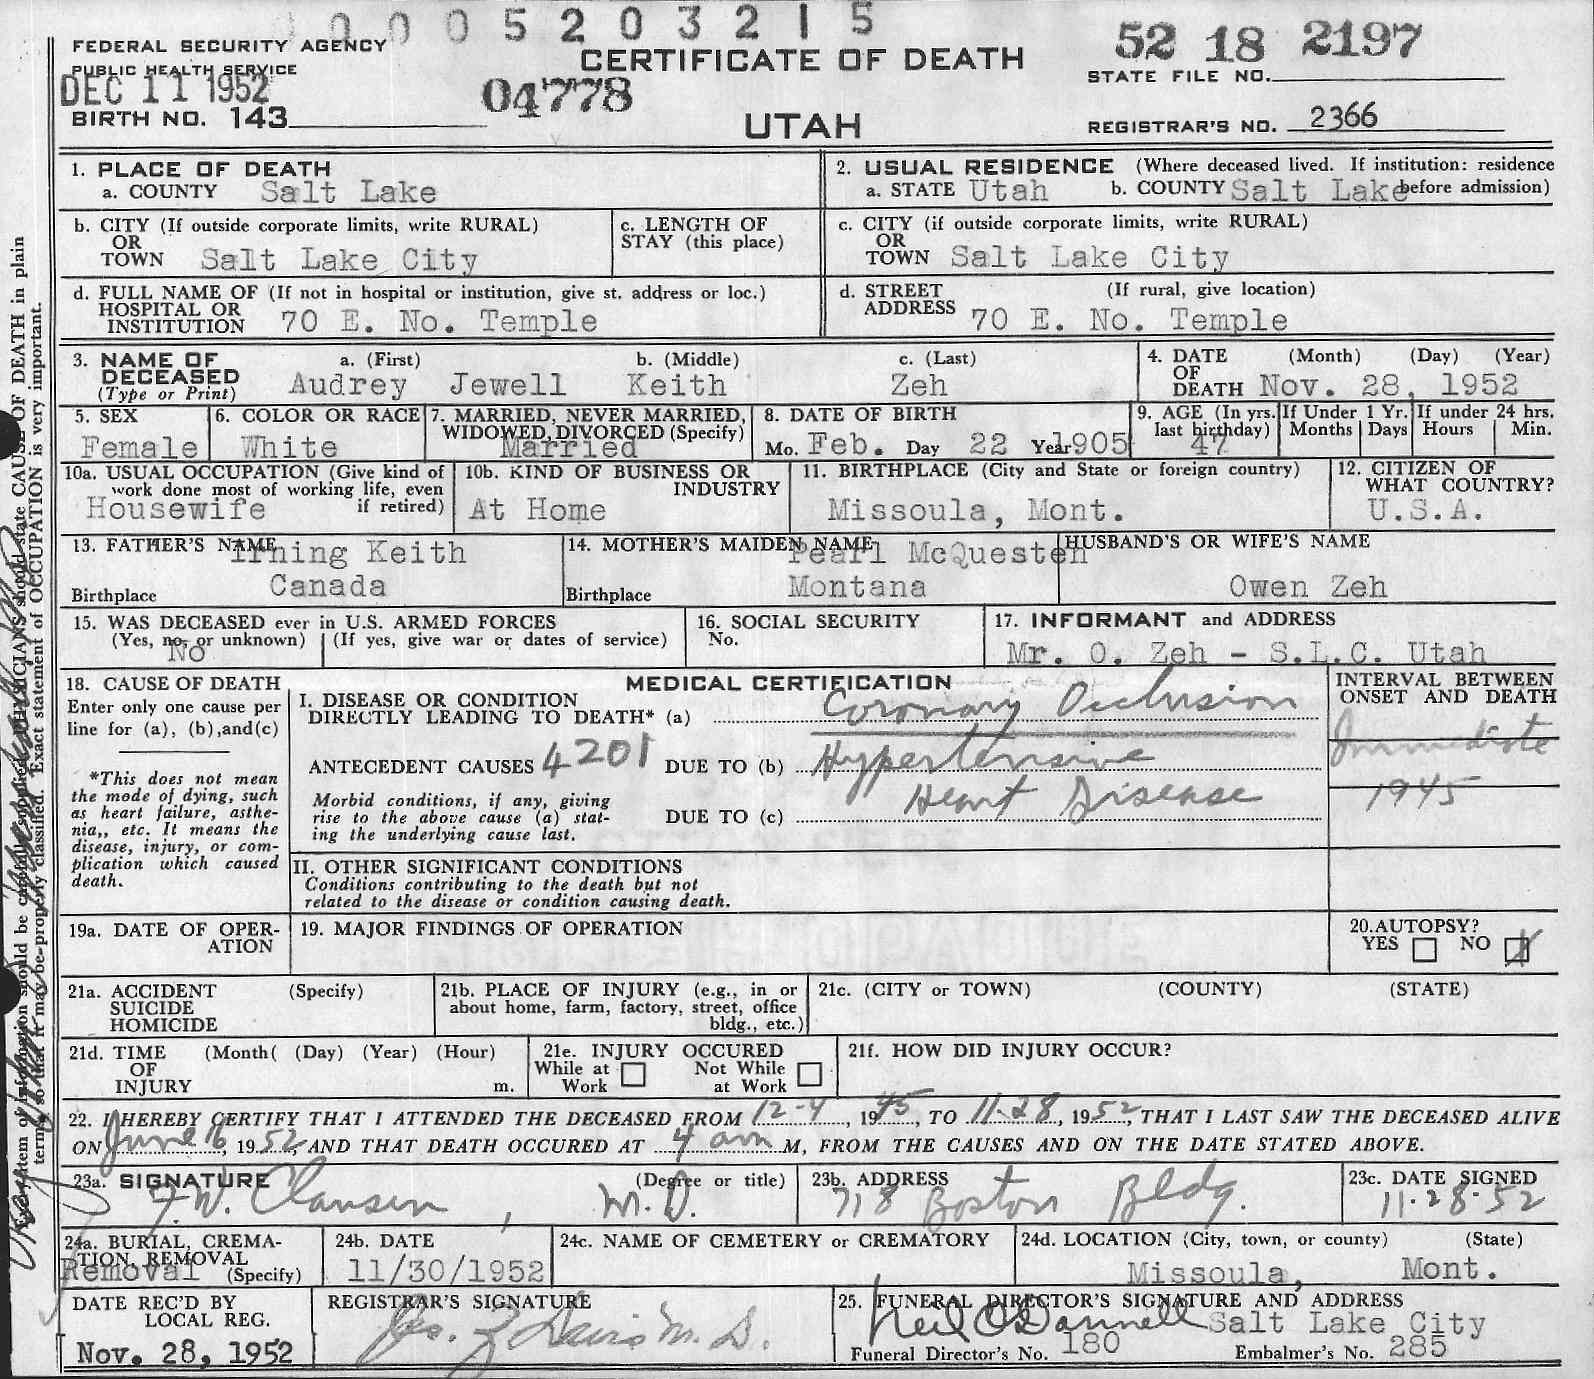 0 0 0 5 2 0 3 2 1 5
FEDERAL SECURITY AGENCY
PUBLIC HEALTH SERVICE
DEC 11 1952
BIRTH NO. 143
04778
CERTIFICATE OF DEATH
UTAH
52 18 2197
STATE FILE NO.
REGISTRAR'S NO. 2366
1. PLACE OF DEATH
a. COUNTY Salt Lake
2. USUAL RESIDENCE (Where deceased lived. If institution: residence before admission)
a. STATE Utah b. COUNTY Salt Lake
b. CITY (If outside corporate limits, write RURAL)
OR
TOWN Salt Lake City
c. LENGTH OF
STAY (this place)
c. CITY (if outside corporate limits, write RURAL)
OR
TOWN Salt Lake City
d. FULL NAME OF (If not in hospital or institution, give st. address or loc.)
HOSPITAL OR
INSTITUTION 70 E. No. Temple
d. STREET (If rural, give location)
ADDRESS 70 E. No. Temple
3. NAME OF a. (First) b. (Middle) c. (Last)
DECEASED Audrey Jewell Keith Zeh
(Type or Print)
4. DATE (Month) (Day) (Year)
OF
DEATH Nov. 28, 1952
5. SEX
Female
6. COLOR OR RACE
White
7. MARRIED, NEVER MARRIED,
WIDOWED, DIVORCED (Specify)
Married
8. DATE OF BIRTH
Mo. Feb. Day 22 Year 1905
9. AGE (In yrs.
last birthday)
47
If Under 1 Yr.
Months Days
If under 24 hrs.
Hours Min.
10a. USUAL OCCUPATION (Give kind of
work done most of working life, even
if retired)
Housewife
10b. KIND OF BUSINESS OR
INDUSTRY
At Home
11. BIRTHPLACE (City and State or foreign country)
Missoula, Mont.
12. CITIZEN OF
WHAT COUNTRY?
U.S.A.
13. FATHER'S NAME
Irning Keith
Birthplace Canada
14. MOTHER'S MAIDEN NAME
Pearl McQuesten
Birthplace Montana
HUSBAND'S OR WIFE'S NAME
Owen Zeh
15. WAS DECEASED ever in U.S. ARMED FORCES
(Yes, no, or unknown) (If yes, give war or dates of service)
No
16. SOCIAL SECURITY
No.
17. INFORMANT and ADDRESS
Mr. O. Zeh - S.L.C. Utah
18. CAUSE OF DEATH
Enter only one cause per
line for (a), (b), and (c)
*This does not mean
the mode of dying, such
as heart failure, asthe-
nia,, etc. It means the
disease, injury, or com-
plication which caused
death.
MEDICAL CERTIFICATION
I. DISEASE OR CONDITION
DIRECTLY LEADING TO DEATH* (a) Coronary Occlusion
ANTECEDENT CAUSES 4201 DUE TO (b) Hypertensive
Heart Disease
Morbid conditions, if any, giving
rise to the above cause (a) stat-
ing the underlying cause last.
DUE TO (c)
INTERVAL BETWEEN
ONSET AND DEATH
Immediate
1945
II. OTHER SIGNIFICANT CONDITIONS
Conditions contributing to the death but not
related to the disease or condition causing death.
19a. DATE OF OPER-
ATION
19. MAJOR FINDINGS OF OPERATION
20. AUTOPSY?
YES NO X
21a. ACCIDENT (Specify)
SUICIDE
HOMICIDE
21b. PLACE OF INJURY (e.g., in or
about home, farm, factory, street, office
bldg., etc.)
21c. (CITY or TOWN) (COUNTY) (STATE)
21d. TIME (Month( (Day) (Year) (Hour)
OF
INJURY m.
21e. INJURY OCCURED
While at Not While
Work at Work
21f. HOW DID INJURY OCCUR?
22. I HEREBY CERTIFY THAT I ATTENDED THE DECEASED FROM 12-4, 1945, TO 11-28, 1952, THAT I LAST SAW THE DECEASED ALIVE
ON June 16, 1952, AND THAT DEATH OCCURED AT 4 am M, FROM THE CAUSES AND ON THE DATE STATED ABOVE.
23a. SIGNATURE (Degree or title)
F. W. Clausen, M. D.
23b. ADDRESS
718 Boston Bldg.
23c. DATE SIGNED
11-28-52
24a. BURIAL, CREMA-
TION, REMOVAL
Removal (Specify)
24b. DATE
11/30/1952
24c. NAME OF CEMETERY or CREMATORY
24d. LOCATION (City, town, or county) (State)
Missoula, Mont.
DATE REC'D BY
LOCAL REG.
Nov. 28, 1952
REGISTRAR'S SIGNATURE
25. FUNERAL DIRECTOR'S SIGNATURE AND ADDRESS
Neil O'Donnell Salt Lake City
Funeral Director's No. 180 Embalmer's No. 285
OF DEATH in plain
terms, so that it may be properly classified. Exact statement of OCCUPATION is very important.